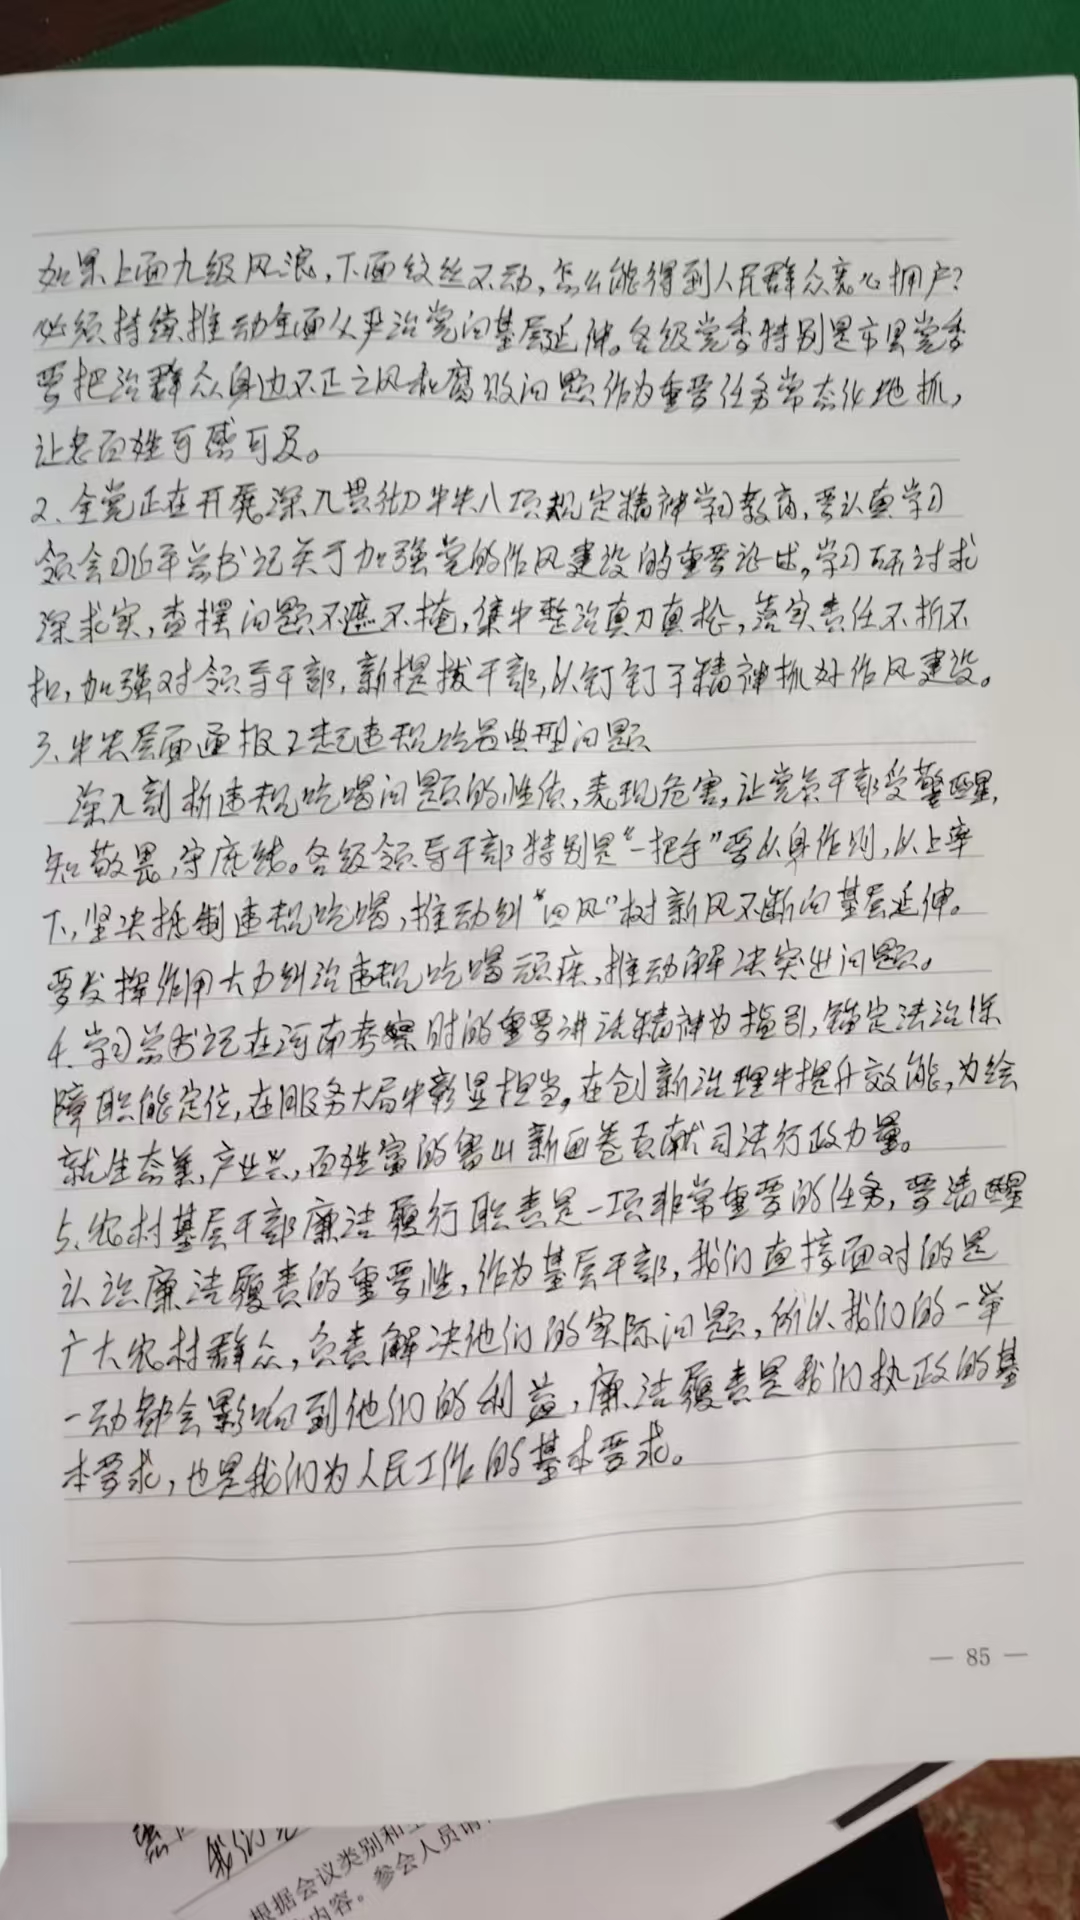 如果上面九级风浪，下面纹丝不动，怎么能得到人民群众衷心拥户？
必须持续推动全面从严治党向基层延伸。各级党委特别是市县党委
要把治群众身边不正之风和腐败问题作为重要任务常态化地抓，
让老百姓可感可及。
2、全党正在开展深入贯彻中央八项规定精神学习教育，要认真学习
领会习近平总书记关于加强党的作风建设的重要论述，学习研讨求
深求实，查摆问题不遮不掩，集中整治真刀真枪，落实责任不折不
扣，加强对领导干部，新提拔干部，以钉钉子精神抓好作风建设。
3、中央层面通报2起违规吃喝典型问题
深入剖析违规吃喝问题的性质，表现危害，让党员干部受警醒，
知敬畏，守底线。各级领导干部特别是“一把手”要以身作则，以上率
下，坚决抵制违规吃喝，推动纠“四风”树新风不断向基层延伸。
要发挥作用大力纠治违规吃喝顽疾，推动解决突出问题。
4、学习总书记在河南考察时的重要讲话精神为指引，锚定法治保
障职能定位，在服务大局中彰显担当，在创新治理中提升效能，为绘
就生态美，产业兴，百姓富的鲁山新画卷贡献司法行政力量。
5、农村基层干部廉洁履行职责是一项非常重要的任务，要清醒
认识廉洁履责的重要性，作为基层干部，我们直接面对的是
广大农村群众，负责解决他们的实际问题，所以我们的一举
一动都会影响到他们的利益，廉洁履责是我们执政的基
本要求，也是我们为人民工作的基本要求。
— 85 —
我们
根据会议类别和
内容。参会人员请